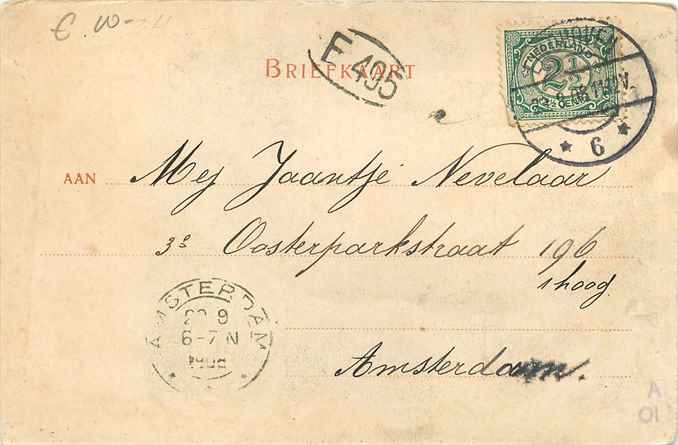 € 10-
BRIEFKAART
E 495
NEDERLAND
2½
6
AAN Mej Jaantje Nevelaar
3e Oosterparkstraat 196
1 hoog
Amsterdam.
AMSTERDAM
9
6-7 N
A
01